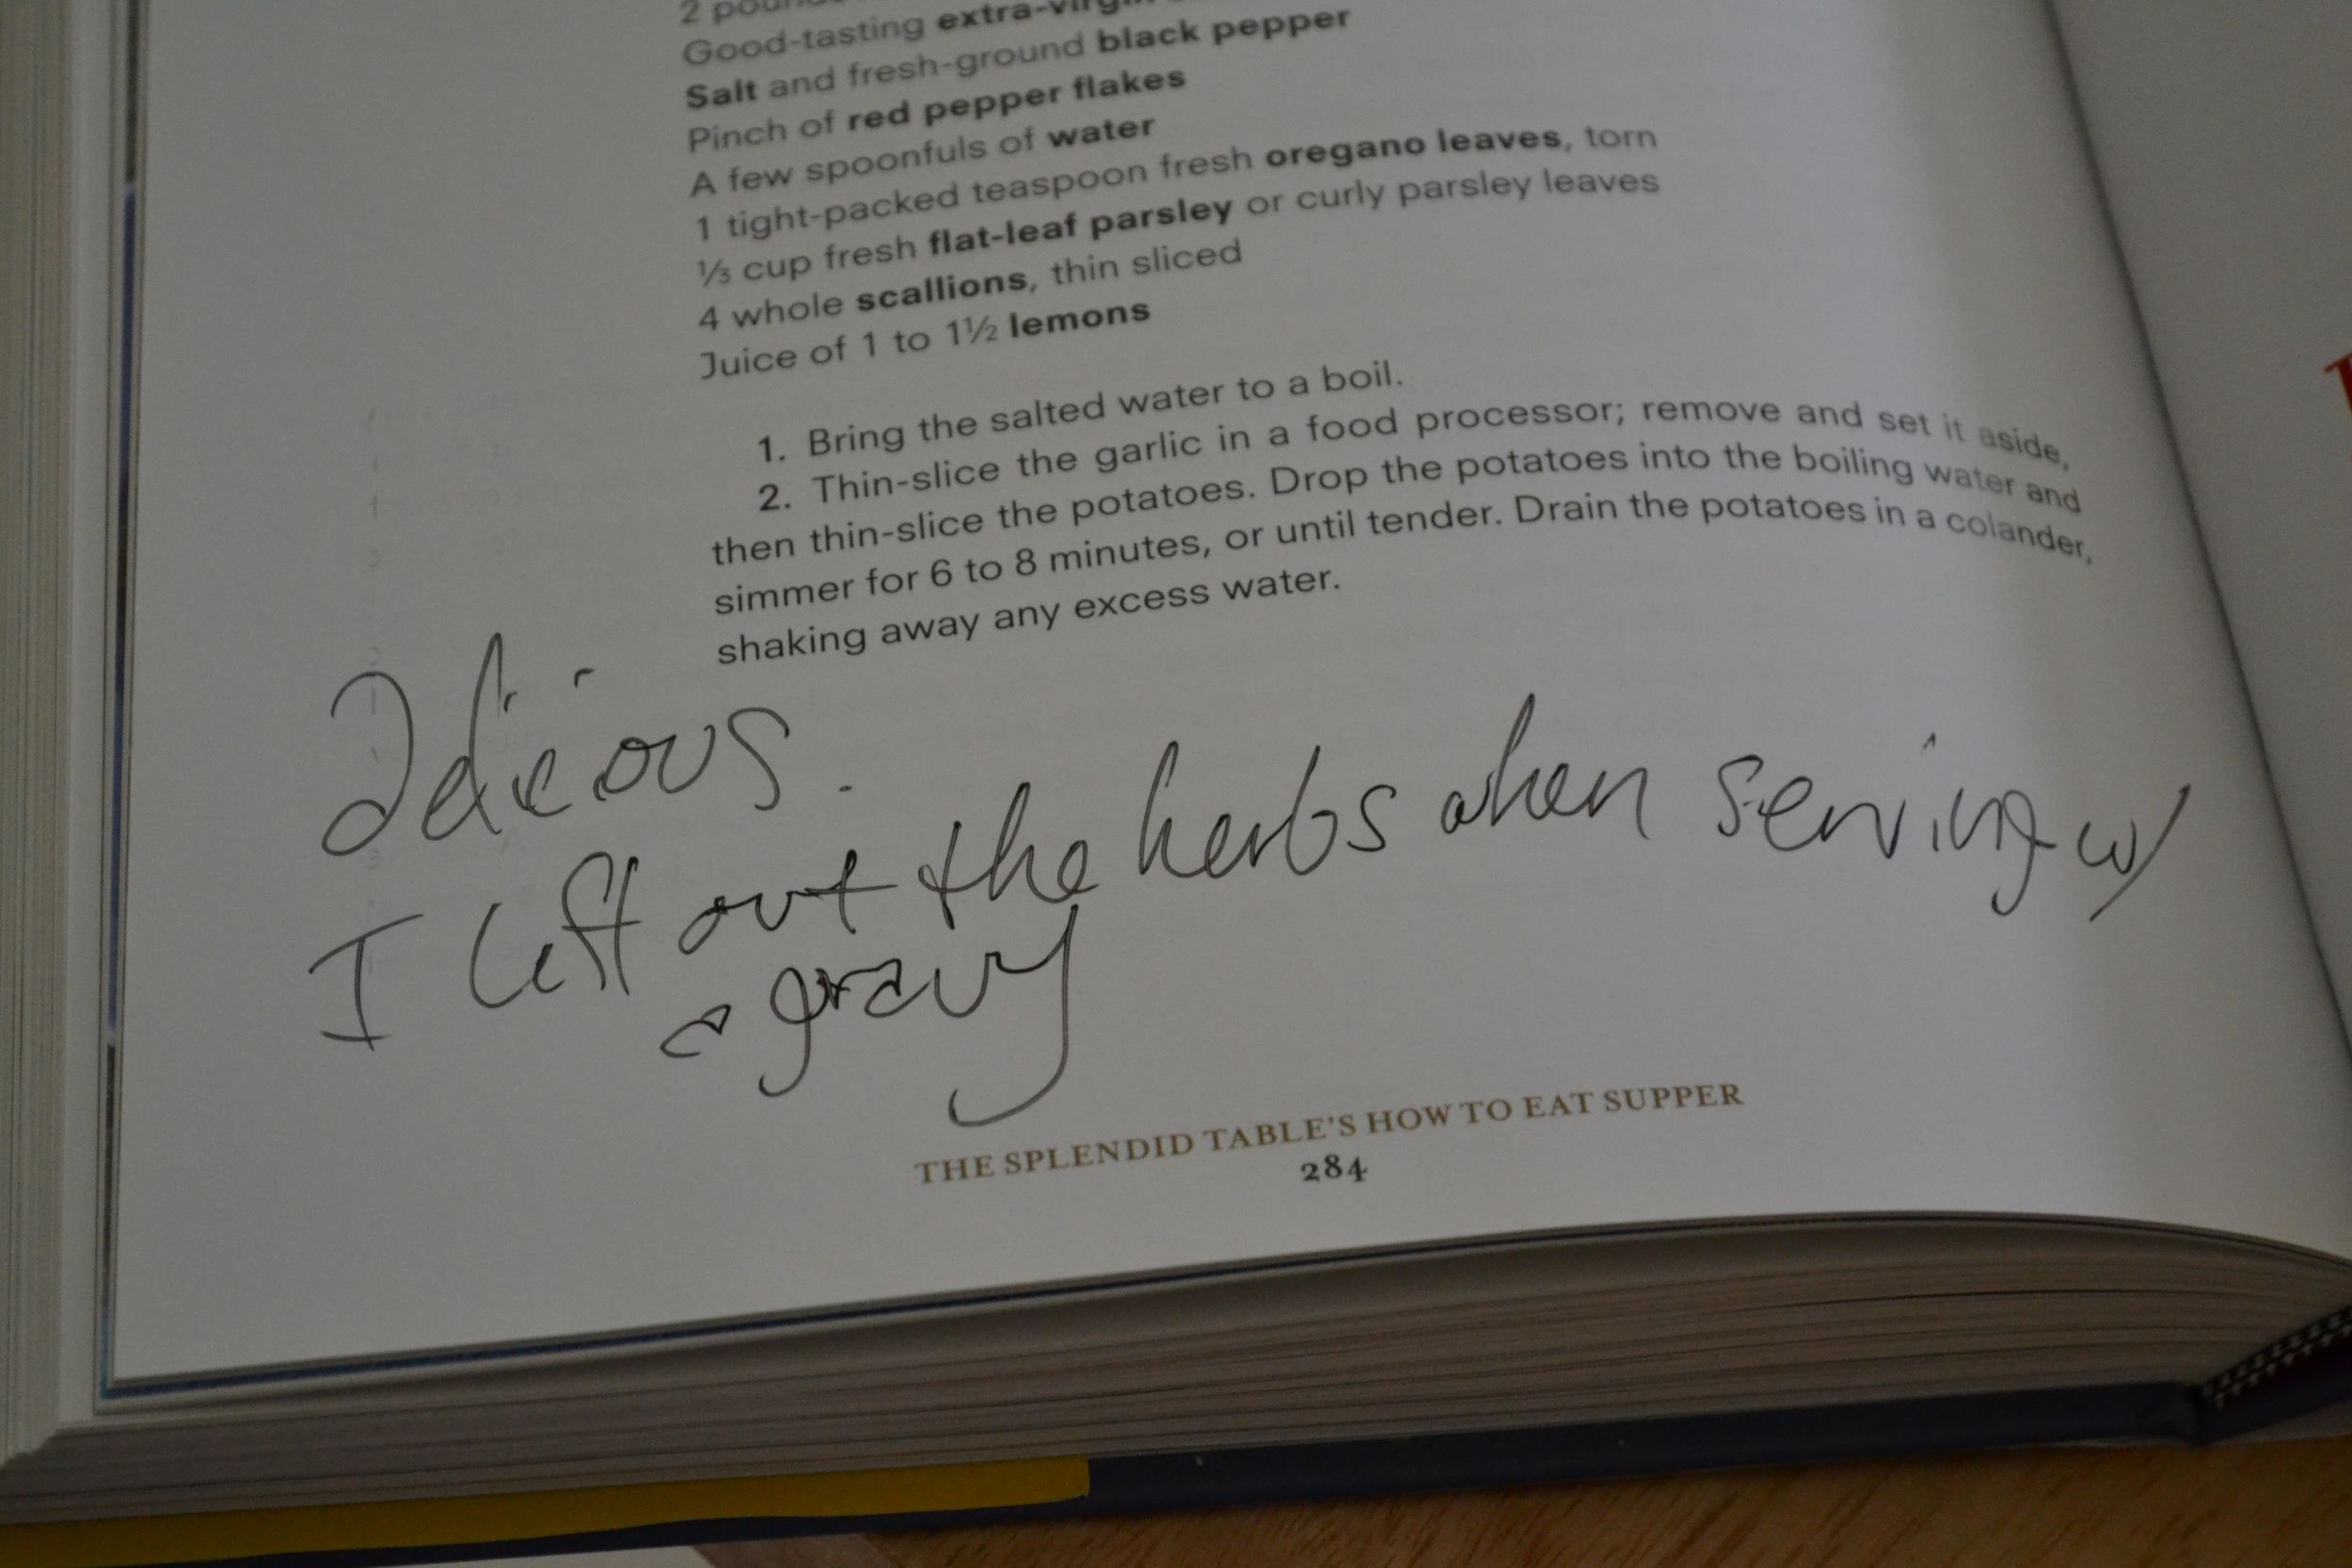 2
Good-tasting extra-virgin
Salt and fresh-ground black pepper
Pinch of red pepper flakes
A few spoonfuls of water
1 tight-packed teaspoon fresh oregano leaves, torn
⅓ cup fresh flat-leaf parsley or curly parsley leaves
4 whole scallions, thin sliced
Juice of 1 to 1½ lemons
1. Bring the salted water to a boil.
2. Thin-slice the garlic in a food processor; remove and set it aside,
then thin-slice the potatoes. Drop the potatoes into the boiling water and
simmer for 6 to 8 minutes, or until tender. Drain the potatoes in a colander,
shaking away any excess water.
Delicious.
I left out the herbs when serving w/
a gravy
THE SPLENDID TABLE'S HOW TO EAT SUPPER
284